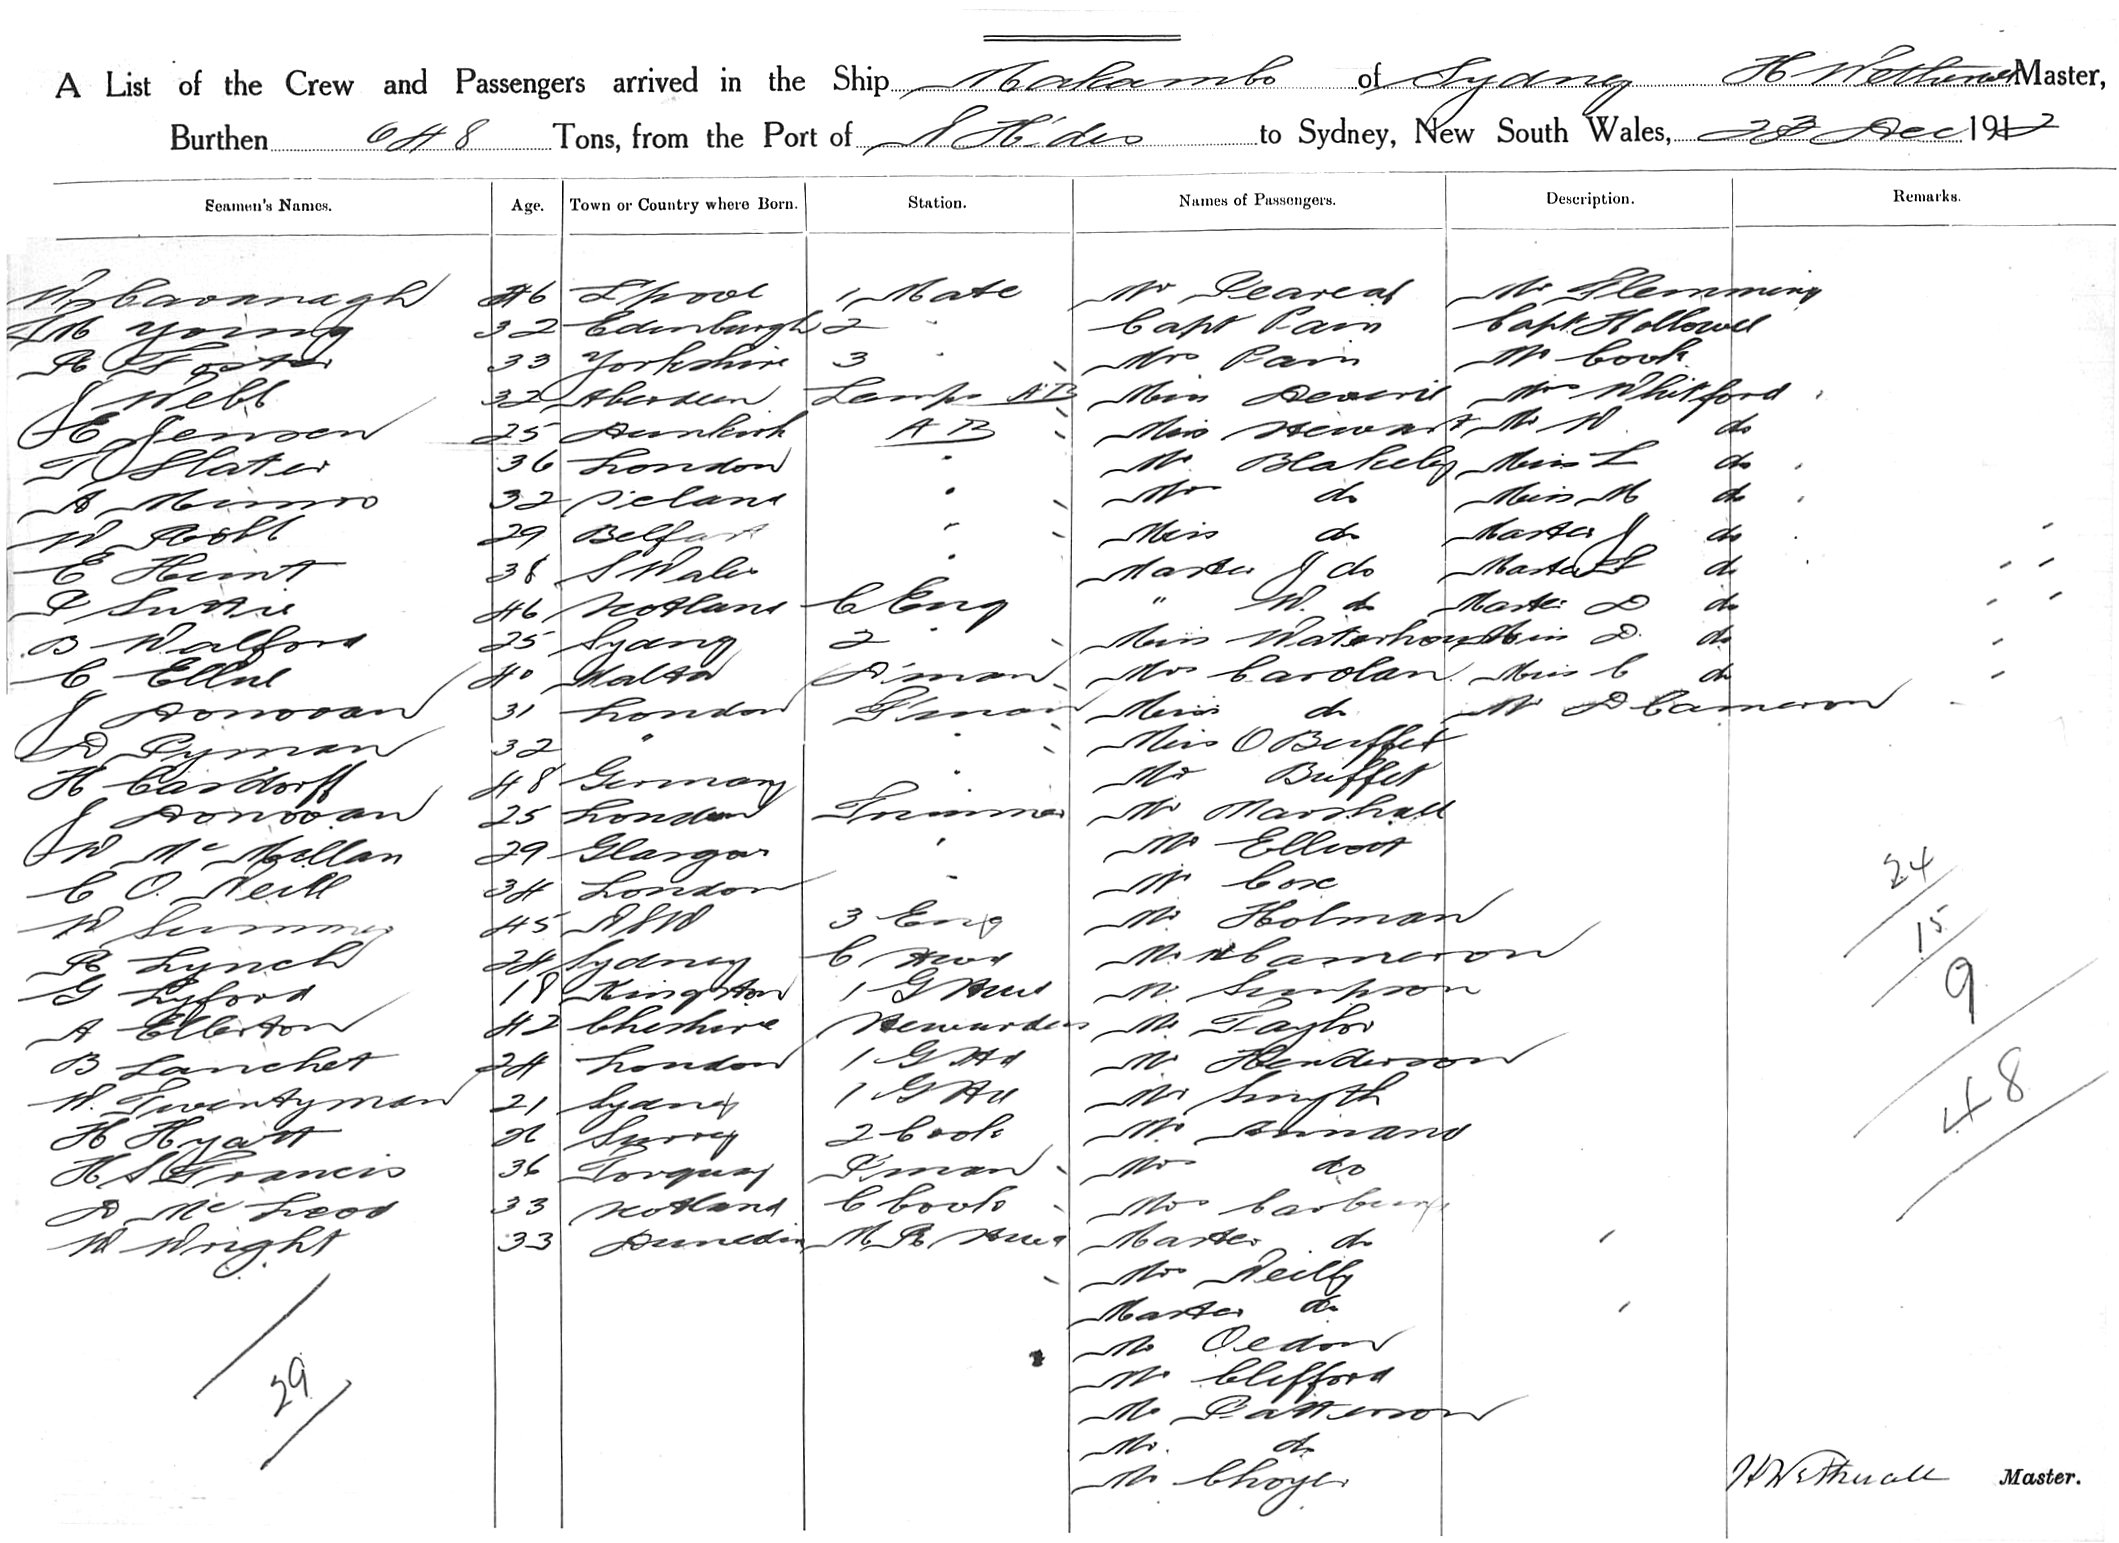 A List of the Crew and Passengers arrived in the Ship Makambo of Sydney H Wetherall Master,
Burthen 648 Tons, from the Port of N H'des to Sydney, New South Wales, 23 Dec 1912
Seamen's Names. Age. Town or Country where Born. Station. Names of Passengers. Description. Remarks.
W Cavanagh 46 L'pool 1 Mate Mr Mr Flemming
Young 32 Edinburgh 2 " Capt Pain Capt Hollowell
R Foster 33 Yorkshire 3 " Mrs Pain Mr Cook
J Webb 32 Aberdeen Lamps AB Miss Mrs Whitford
E Jensen 25 Dunkirk AB Miss Stewart Mr W do
T Slater 36 London " Mr Blakeley Miss L do
A Munro 32 Iceland " Mrs do Miss M do
W Robb 29 Belfast " Miss do Master J do
E Hunt 38 S Wales " Master J do Master L do
P Suttie 46 Scotland C Eng " W. do Master D do
B Walford 25 Sydney 2 " Miss Waterhouse Miss D. do
C Ellul 40 Malta D'man Mrs Carolan Miss C do
J Donovan 31 London F'man Miss do Mr D Cameron
D Pyman 32 " " Miss O Buffet
H Cardorff 48 Germany " Mr Buffet
J Donovan 25 London Trimmer Mr Marshall
W McMillan 29 Glasgow " Mr Elliott
C O. Neill 34 London " Mr Cox
W 45 NSW 3 Eng Mr Holman
R Lynch 24 Sydney C Stwd Mr Cameron
G Lyford 18 Kingston 1 G Stwd Mr Simpson
A Ellerton 42 Cheshire Stewardess Mr Taylor
B Lanchet 24 London 1 G Std Mr Henderson
W. Twentyman 21 Sydney 1 G Std Mr Smyth
H Hyatt 26 Surrey 2 Cook Mr
H S Francis 36 Torquay P'man Mrs do
D McLeod 33 Scotland C Cook Mrs
W Wright 33 Dunedin M R Stwd Master do
Mrs Neilly
Master do
Mr Oedon
Mr Clifford
Mr Patterson
Mr. do
Mr Choyer
24
15
9
48
29
H Wetherall Master.